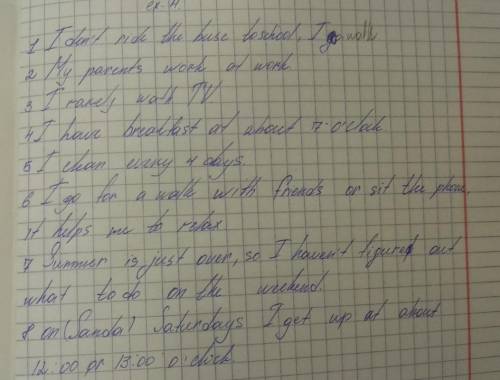 ex. 4
1 I don't ride the buse toschool, I go walk
2 My parents work at work
3 I rarely walk TV
4 I have breakfast at about 7 o'clock
5 I clean every 4 days
6 I go for a walk with friends or sit the phone,
it helps me to relax
7 Summer is just over, so I haven't figured out
what to do on the weekend.
8 on (Sanda) Saturdays I get up at about
12:00 or 13:00 o'clock